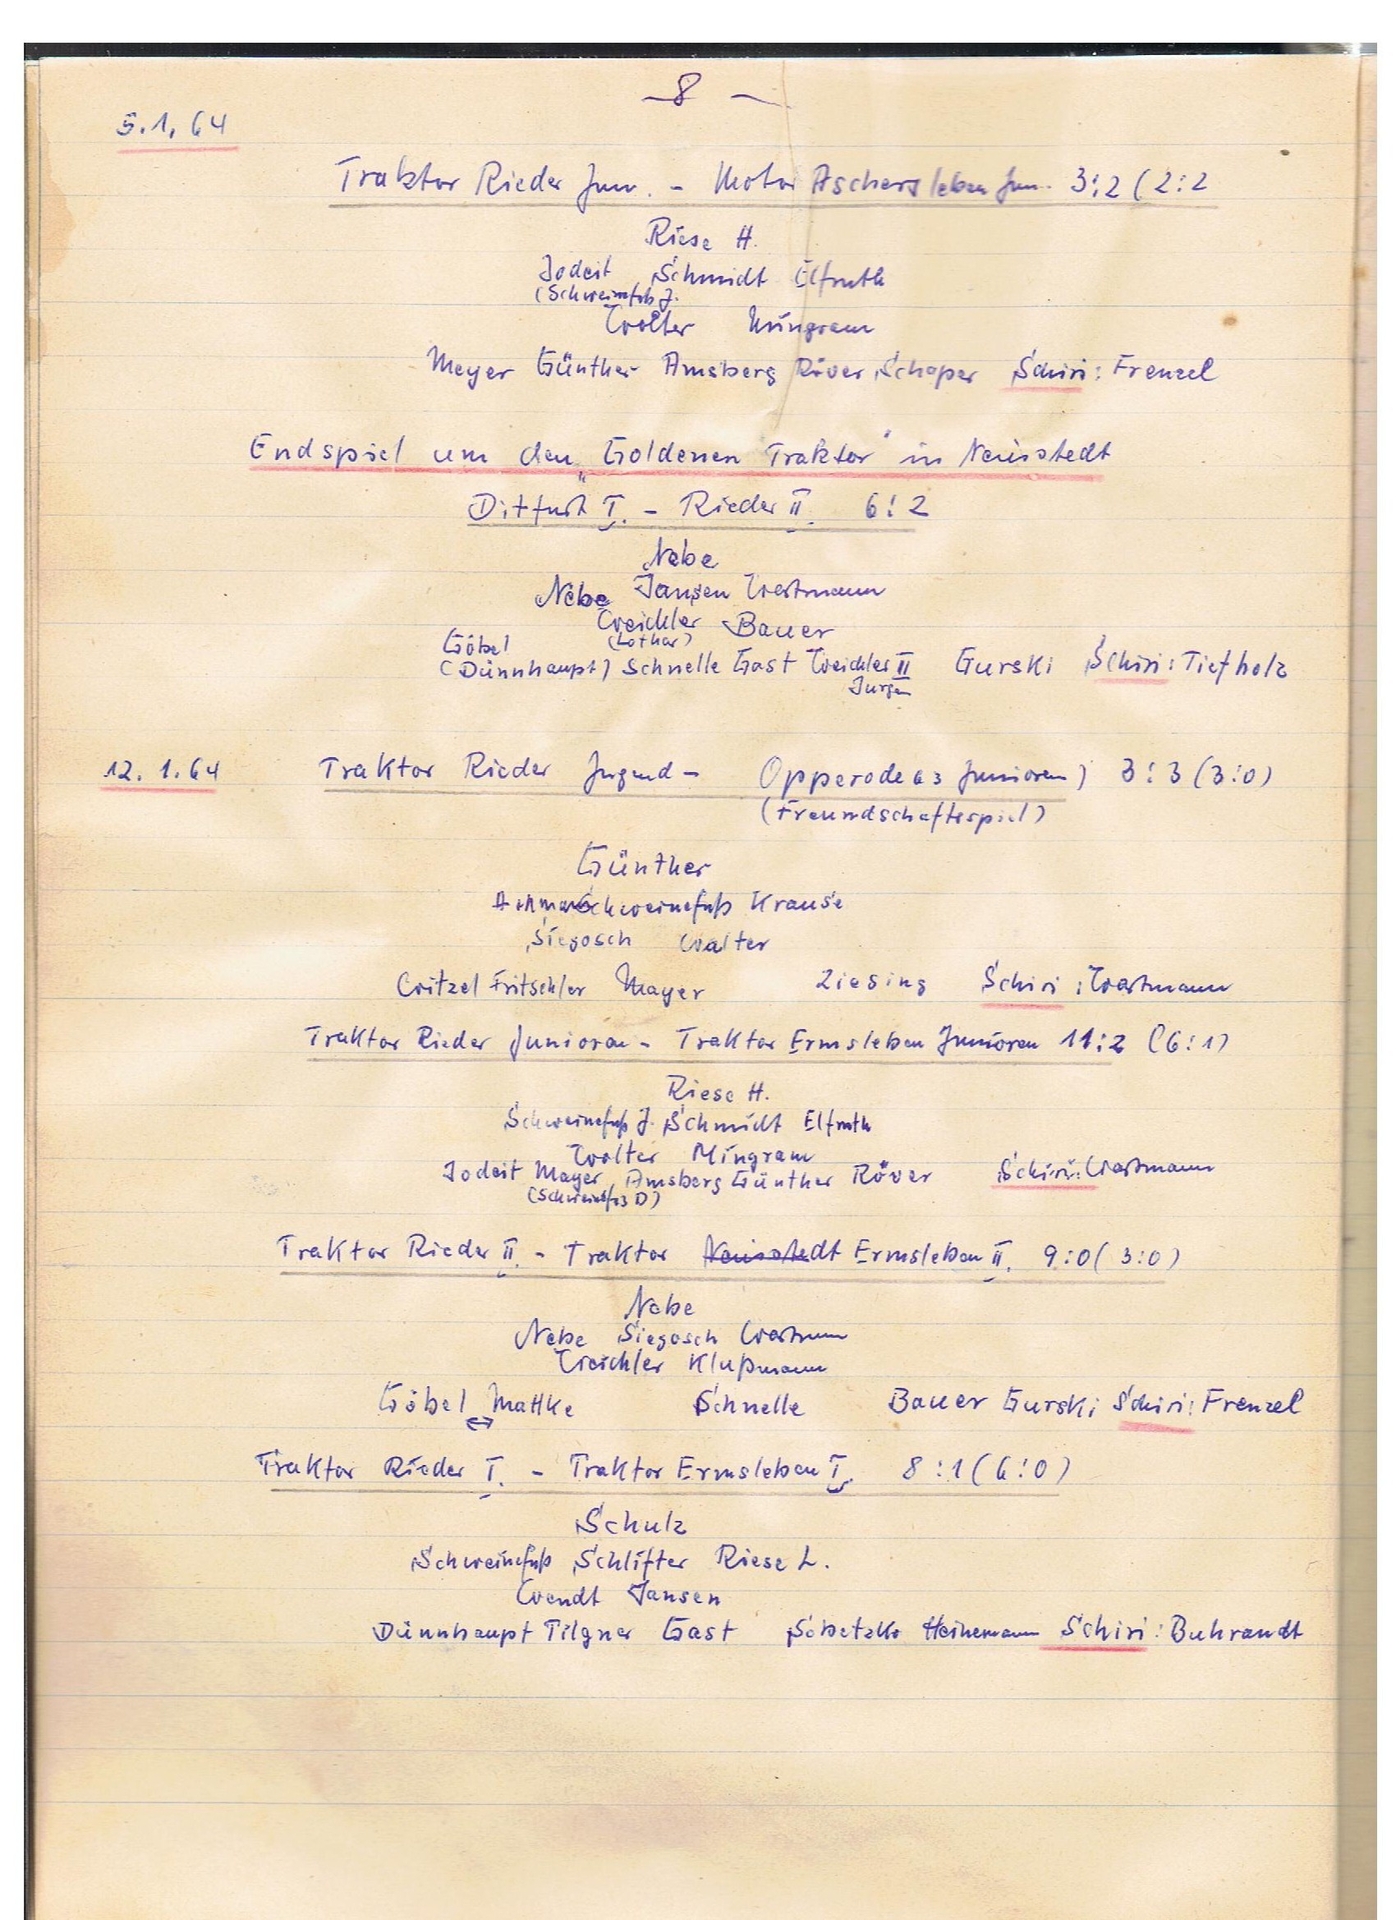 – 8 –
5.1.64
Traktor Rieder Jun. – Motor Aschersleben Jun. 3:2 (2:2
Riese H.
Jodeit Schmidt Elfruth
(Schweinefuß J.
Wolter Mingram
Meyer Günther Amsberg Röver Schaper Schiri: Frenzel
Endspiel um den „Goldenen Traktor" in Neinstedt
Ditfurt I. – Rieder II. 6:2
Nebe
Nebe Jansen Wertmann
Weichler Bauer
Göbel (Lothar)
(Dünnhaupt) Schnelle Gast Weichler II Gurski Schiri: Tiefholz
Jürgen
12.1.64 Traktor Rieder Jugend – Opperode (63 Junioren) 3:3 (3:0)
(Freundschaftsspiel)
Günther
Schweinefuß Krause
Siegosch Walter
Witzel Fritschler Mayer Ziesing Schiri: Wertmann
Traktor Rieder Junioren – Traktor Ermsleben Junioren 11:2 (6:1)
Riese H.
Schweinefuß J. Schmidt Elfruth
Wolter Mingram
Jodeit Mayer Amsberg Günther Röver Schiri: Wertmann
(Schweinefuß D)
Traktor Rieder II. – Traktor Neinstedt Ermsleben II. 9:0 (3:0)
Nebe
Nebe Siegosch Wertmann
Weichler Klußmann
Göbel ↔ Mattke Schnelle Bauer Gurski Schiri: Frenzel
Traktor Rieder I. – Traktor Ermsleben I. 8:1 (6:0)
Schulz
Schweinefuß Schlifter Riese L.
Wendt Jansen
Dünnhaupt Tilgner Gast Sobetzko Heinemann Schiri: Buhrandt